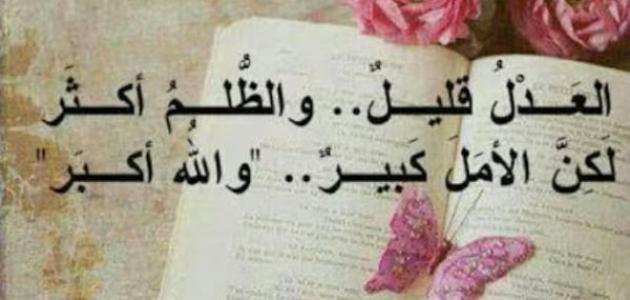 العَـدْلُ قليـلٌ.. والظُّلـمُ أكـثَر
لَكِنَّ الأمَلَ كَبيـرٌ.. "واللهُ أكـبَر"